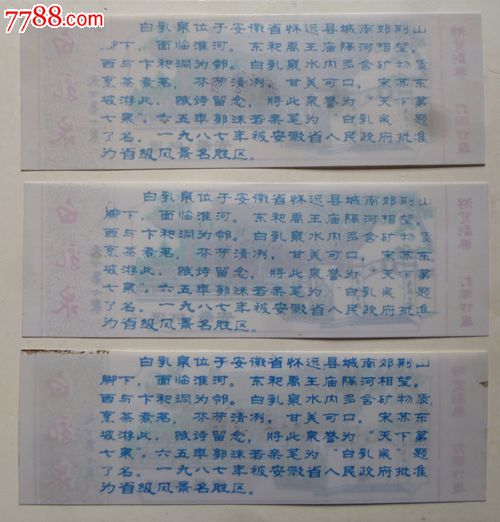 7788.com
白乳泉位于安徽省怀远县城南郊荆山
脚下，面临淮河。东和禹王庙隔河相望。
西与卞和洞为邻。白乳泉水内多含矿物质
烹茶煮茗，芬芳清冽，甘美可口。宋苏东
坡游此，赋诗留念，将此泉誉为“天下第
七泉”。六五年郭沫若亲笔为“白乳泉”题
了名。一九八七年被安徽省人民政府批准
为省级风景名胜区。
白乳泉
白乳泉位于安徽省怀远县城南郊荆山
脚下，面临淮河。东和禹王庙隔河相望。
西与卞和洞为邻。白乳泉水内多含矿物质
烹茶煮茗，芬芳清冽，甘美可口。宋苏东
坡游此，赋诗留念，将此泉誉为“天下第
七泉”。六五年郭沫若亲笔为“白乳泉”题
了名。一九八七年被安徽省人民政府批准
为省级风景名胜区。
白乳泉
白乳泉位于安徽省怀远县城南郊荆山
脚下，面临淮河。东和禹王庙隔河相望。
西与卞和洞为邻。白乳泉水内多含矿物质
烹茶煮茗，芬芳清冽，甘美可口。宋苏东
坡游此，赋诗留念，将此泉誉为“天下第
七泉”。六五年郭沫若亲笔为“白乳泉”题
了名。一九八七年被安徽省人民政府批准
为省级风景名胜区。
白乳泉